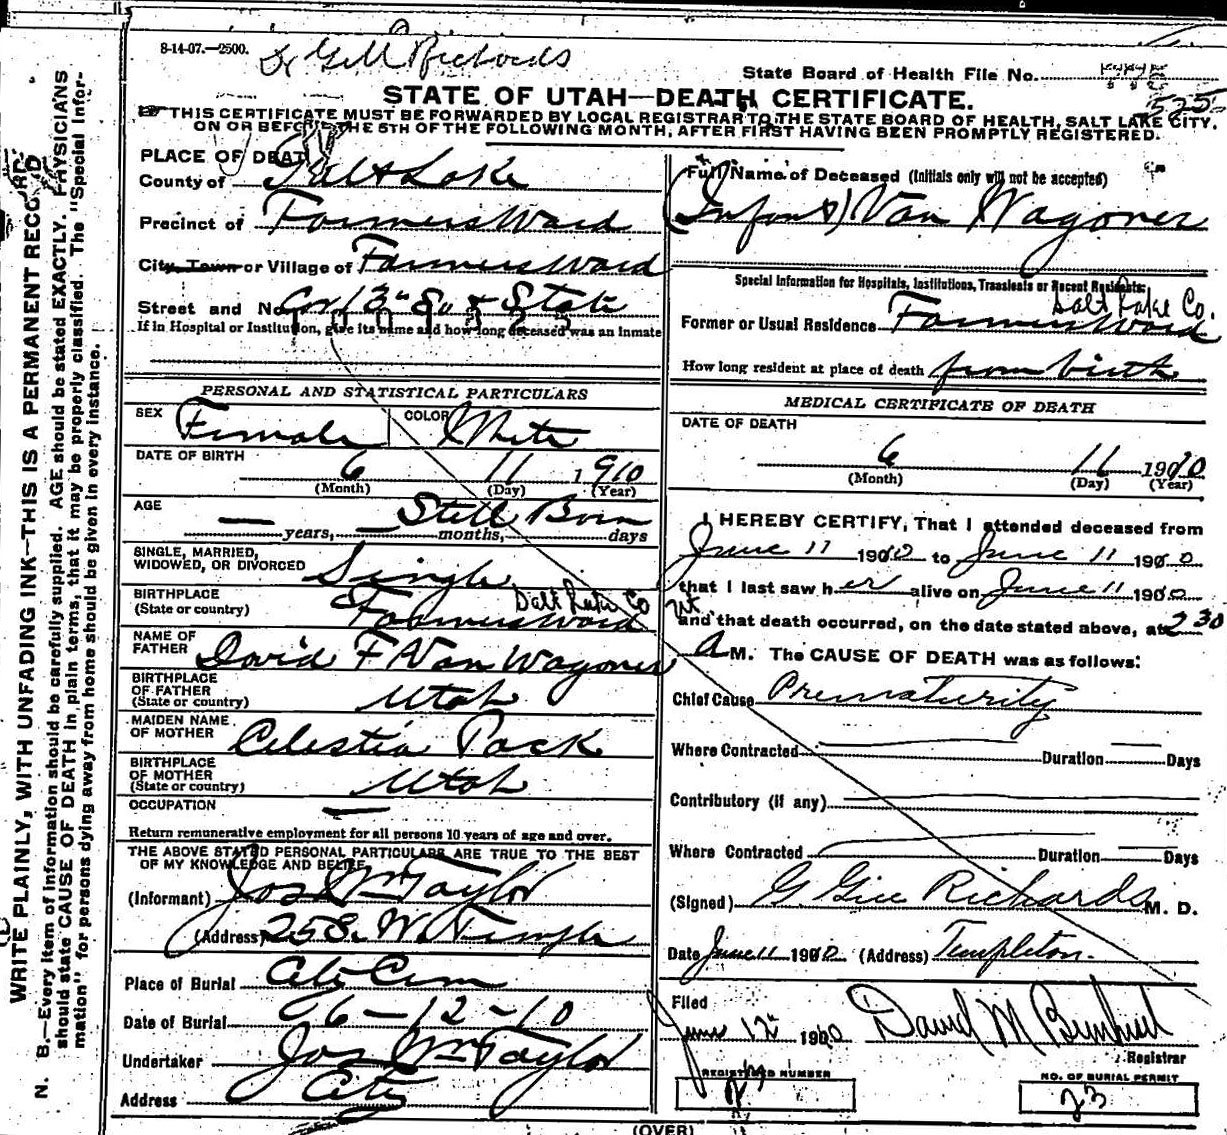 8-14-07.—2500.
Dr Gill Richards
State Board of Health File No.
525
STATE OF UTAH—DEATH CERTIFICATE.
THIS CERTIFICATE MUST BE FORWARDED BY LOCAL REGISTRAR TO THE STATE BOARD OF HEALTH, SALT LAKE CITY.
ON OR BEFORE THE 5TH OF THE FOLLOWING MONTH, AFTER FIRST HAVING BEEN PROMPTLY REGISTERED.
WRITE PLAINLY, WITH UNFADING INK—THIS IS A PERMANENT RECORD
N. B.—Every item of information should be carefully supplied. AGE should be stated EXACTLY. PHYSICIANS
should state CAUSE OF DEATH in plain terms, that it may be properly classified. The "Special Infor-
mation" for persons dying away from home should be given in every instance.
PLACE OF DEATH
County of Salt Lake
Precinct of Farmers Ward
City, Town or Village of Farmers Ward
Street and No. Cor 13" So & State
If in Hospital or Institution, give its name and how long deceased was an inmate
PERSONAL AND STATISTICAL PARTICULARS
SEX Female COLOR White
DATE OF BIRTH
6 11 1910
(Month) (Day) (Year)
AGE Still Born
— years, — months, days
SINGLE, MARRIED,
WIDOWED, OR DIVORCED Single
BIRTHPLACE
(State or country) Farmers Ward Salt Lake Co Ut
NAME OF
FATHER David F Van Wagoner
BIRTHPLACE
OF FATHER
(State or country) Utah
MAIDEN NAME
OF MOTHER Celestia Pack
BIRTHPLACE
OF MOTHER
(State or country) Utah
OCCUPATION —
Return remunerative employment for all persons 10 years of age and over.
THE ABOVE STATED PERSONAL PARTICULARS ARE TRUE TO THE BEST
OF MY KNOWLEDGE AND BELIEF
(Informant) Jos Wm Taylor
(Address) 25 S. W. Temple
Place of Burial City Cem
Date of Burial 6-12-10
Undertaker Jos Wm Taylor
Address City
Full Name of Deceased (Initials only will not be accepted)
(Infant) Van Wagoner
Special Information for Hospitals, Institutions, Transients or Recent Residents:
Salt Lake Co.
Former or Usual Residence Farmers Ward
How long resident at place of death from birth
MEDICAL CERTIFICATE OF DEATH
DATE OF DEATH
6 11 1910
(Month) (Day) (Year)
I HEREBY CERTIFY, That I attended deceased from
June 11 1910 to June 11 1910
that I last saw her alive on June 11 1910
and that death occurred, on the date stated above, at 2 30
A M. The CAUSE OF DEATH was as follows:
Chief Cause Prematurity
Where Contracted Duration Days
Contributory (if any)
Where Contracted Duration Days
(Signed) G Gill Richards M. D.
Date June 11 1910 (Address) Templeton.
Filed
June 12" 1910 David M
Registrar
REGISTERED NUMBER
NO. OF BURIAL PERMIT
23
(OVER)